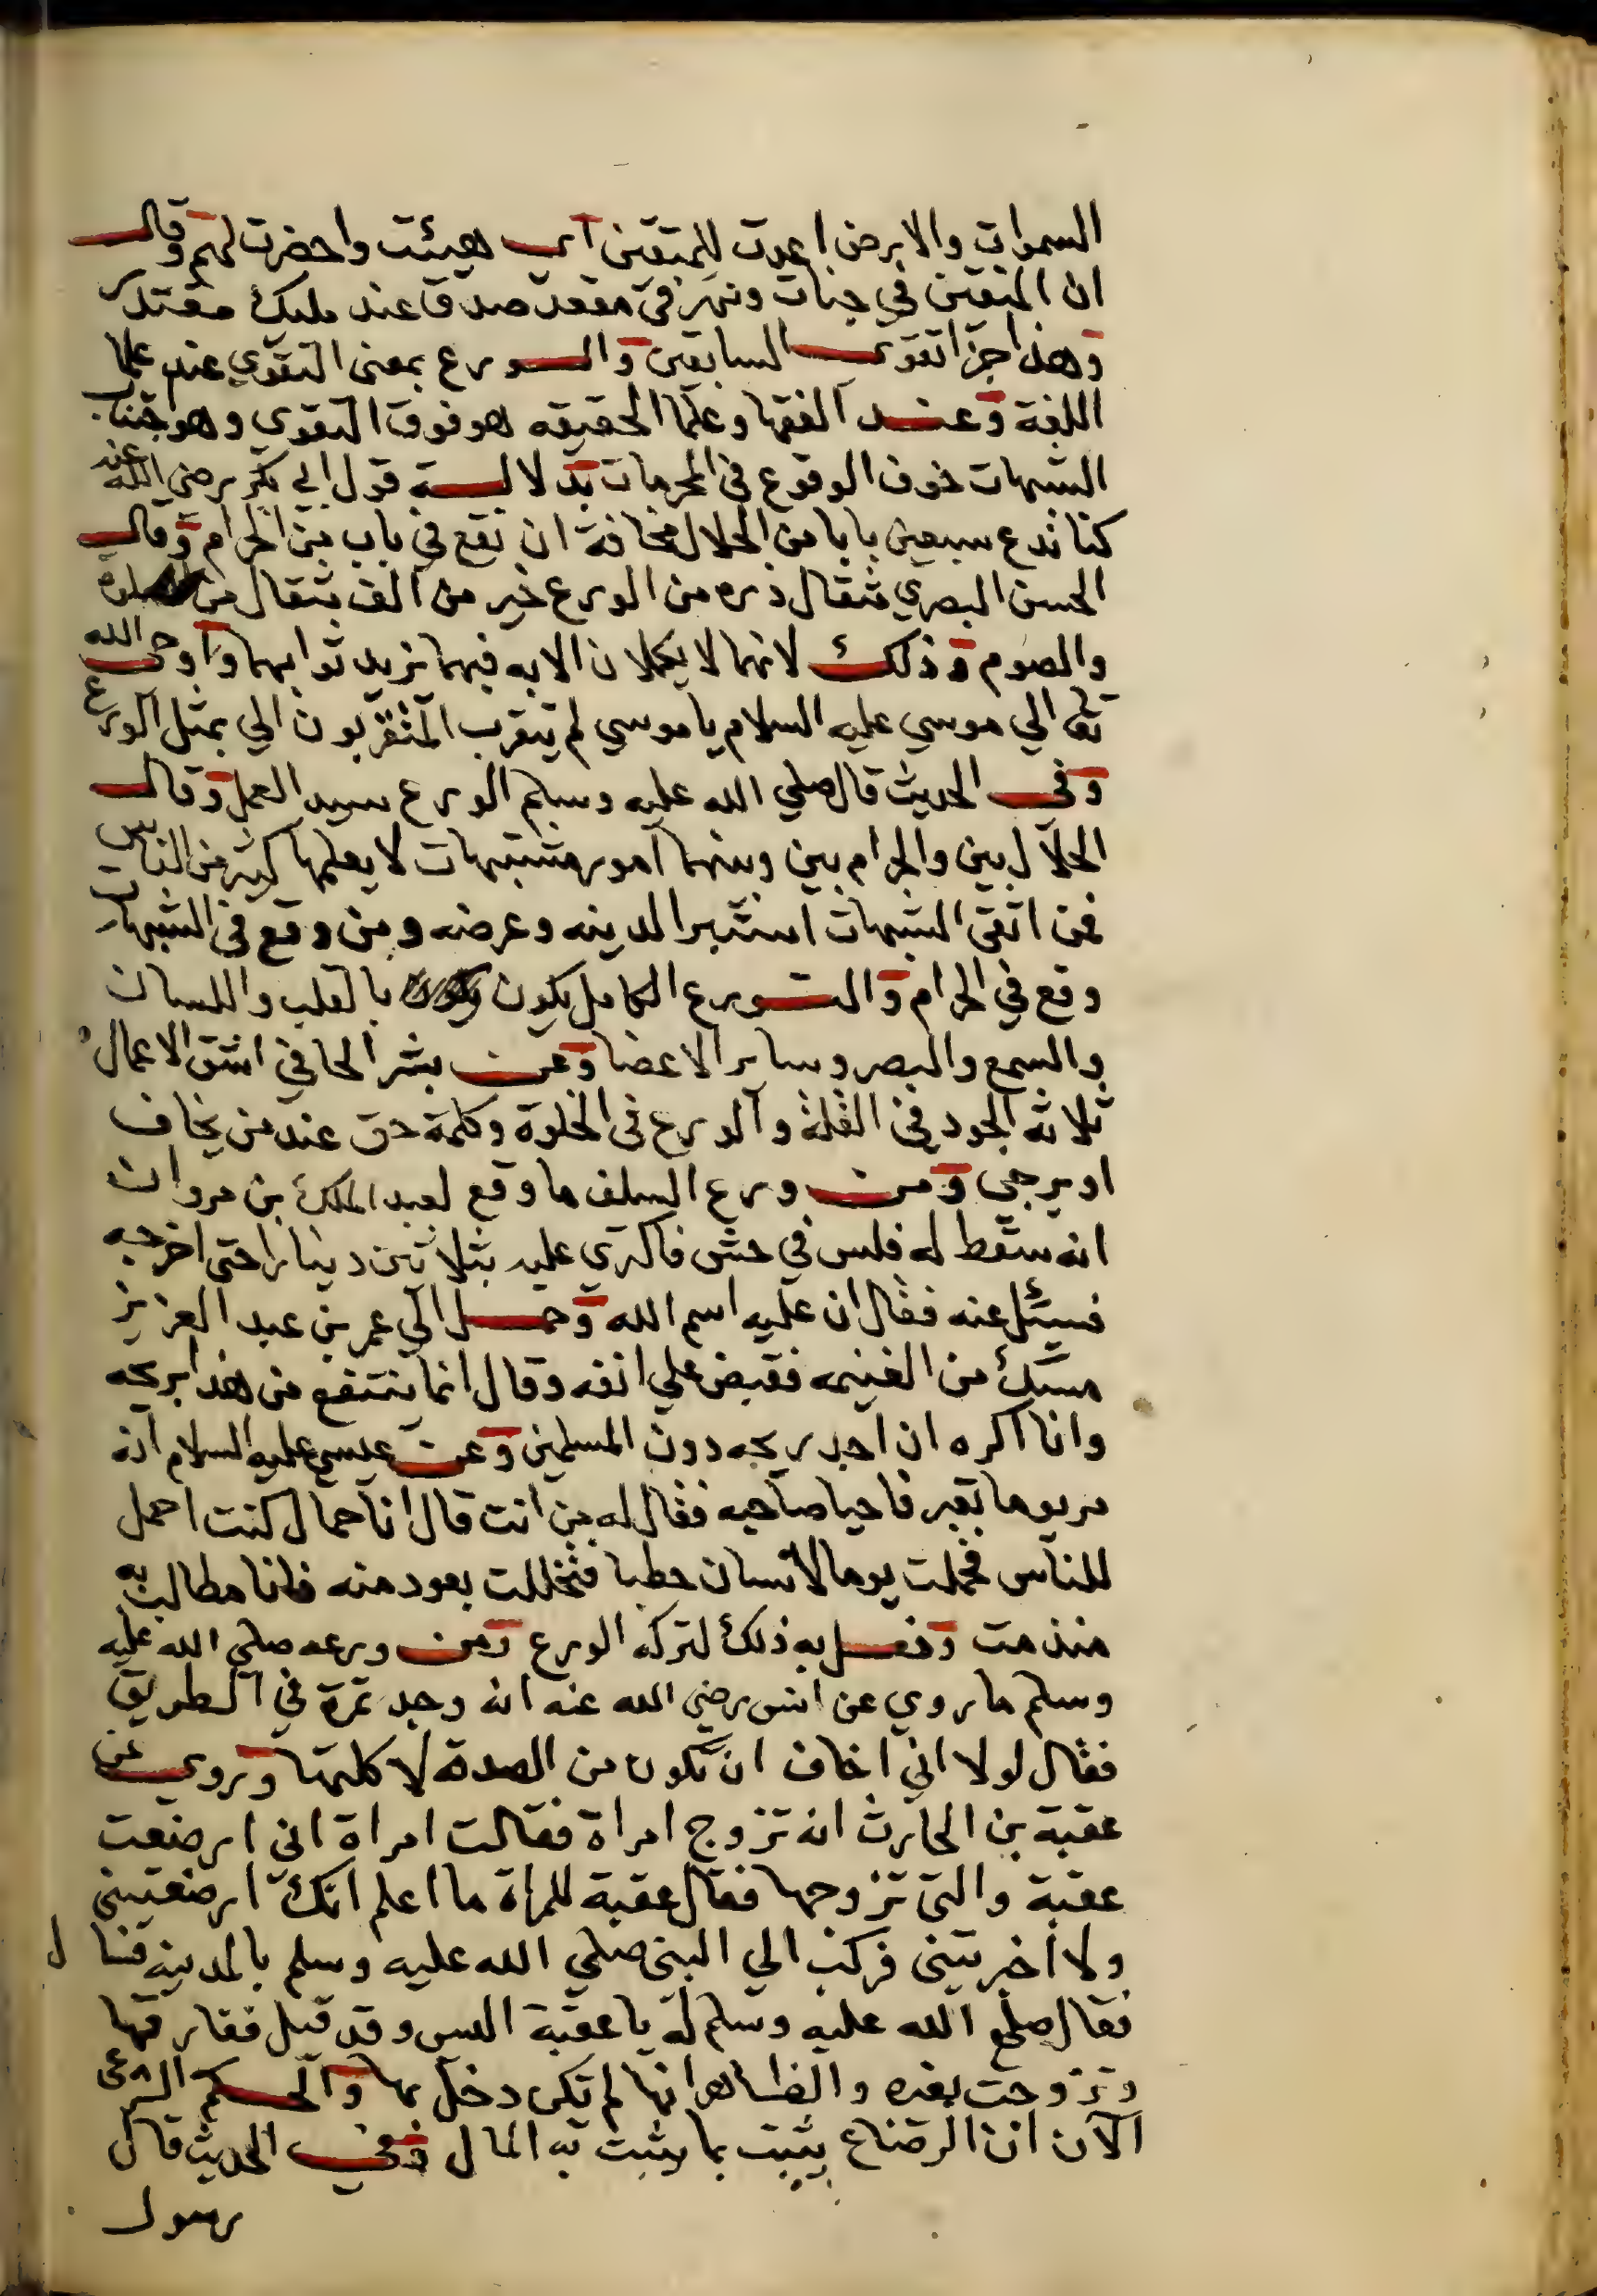 السموات والارض اعدت للمتقين اي هيئت واحضرت لهم وقال
ان المتقين في جنات ونهر في مقعد صدق عند مليك مقتدر
وهذا جزا تقوي السابقين والورع بمعنى التقوي عند علما
اللغة وعند الفقها وعلما الحقيقه هو فوق التقوي وهو اجتناب
الشبهات خوف الوقوع في المحرمات بدلالة قول ابي بكر رضي الله عنه
كنا ندع سبعين بابا من الحلال مخافة ان نقع في باب من الحرام وقال
الحسن البصري مثقال ذره من الورع خير من الف مثقال من الصلوة
والصوم وذلك لانهما لا يكملان الا به فبهما يزيد ثوابهما واوحى الله
تعا الي موسي عليه السلام يا موسي لم يتقرب المتقربون الي بمثل الورع
وفي الحديث قال صلي الله عليه وسلم الورع سيد العمل وقال
الحلال بين والحرام بين وبينهما امور مشتبهات لا يعلمها كثير من الناس
فمن اتقى الشبهات استبرا لدينه وعرضه ومن وقع في الشبهات
وقع في الحرام والتورع الكامل يكون بالقلب واللسان
والسمع والبصر وساير الاعضا وعن بشر الحافي اشق الاعمال
ثلاثه الجود في القلة والورع في الخلوة وكلمة حق عند من يخاف
او يرجي ومن ورع السلف ما وقع لعبد الملك بن مروان
انه سقط له فلس في حش فاكتري عليه بثلاثين دينارا حتى اخرجه
فسئل عنه فقال ان عليه اسم الله وحمل الي عمر بن عبد العزيز
مسك من الغنيمه فقبض علي انفه وقال انما ينتفع من هذا بريحه
وانا اكره ان اجد ريحه دون المسلمين وعن عيسي عليه السلام انه
مر يوما بقبر فاحيا صاحبه فقال له من انت قال انا حمال كنت احمل
للناس فحملت يوما لانسان حطبا فتخللت بعود منه فانا مطالب به
منذ مت وفعل به ذلك لتركه الورع ومن ورعه صلي الله عليه
وسلم ما روي عن انس رضي الله عنه انه وجد تمرة في الطريق
فقال لولا اني اخاف ان تكون من الصدقة لاكلتها وروي عن
عقبة بن الحارث انه تزوج امراة فقالت امراة اني ارضعت
عقبة والتي تزوجها فقال عقبة للمراة ما اعلم انك ارضعتيني
ولا اخبرتيني فركب الي النبي صلي الله عليه وسلم بالمدينه فسال
فقال صلي الله عليه وسلم له يا عقبة اليس وقد قيل ففارقها
وتزوجت بغيره والظاهر انها لم تكن دخل بها والحكم الشرعي
الآن ان الرضاع يثبت بما يثبت به المال وفي الحديث قال
رسول